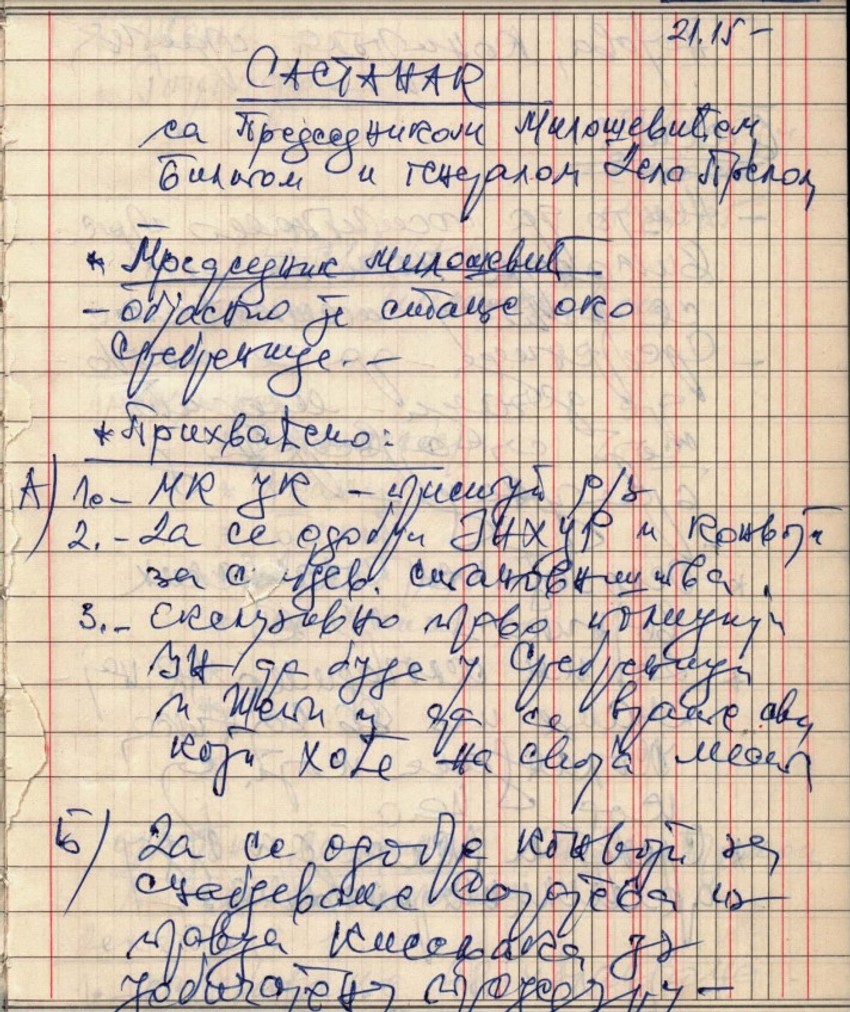 21.15 -
САСТАНАК
са Председником Милошевићем
Билтом и генералом Де ла Прелом
* Председник Милошевић
- објаснио је стање око
Сребренице. -
* Прихваћено:
А) 1. - МК ЦК - приступ р/з
2. - Да се одобри УНХЦР и конвоји
за снабдев. становништва
3. - Ексклузивно право полиције
УН да буде у Сребреници
и Жепи и да се врате сви
који хоће на своја места
Б) Да се одобре конвоји за
снабдевање Сарајева из
правца Кисељака уз
уобичајену процедуру -